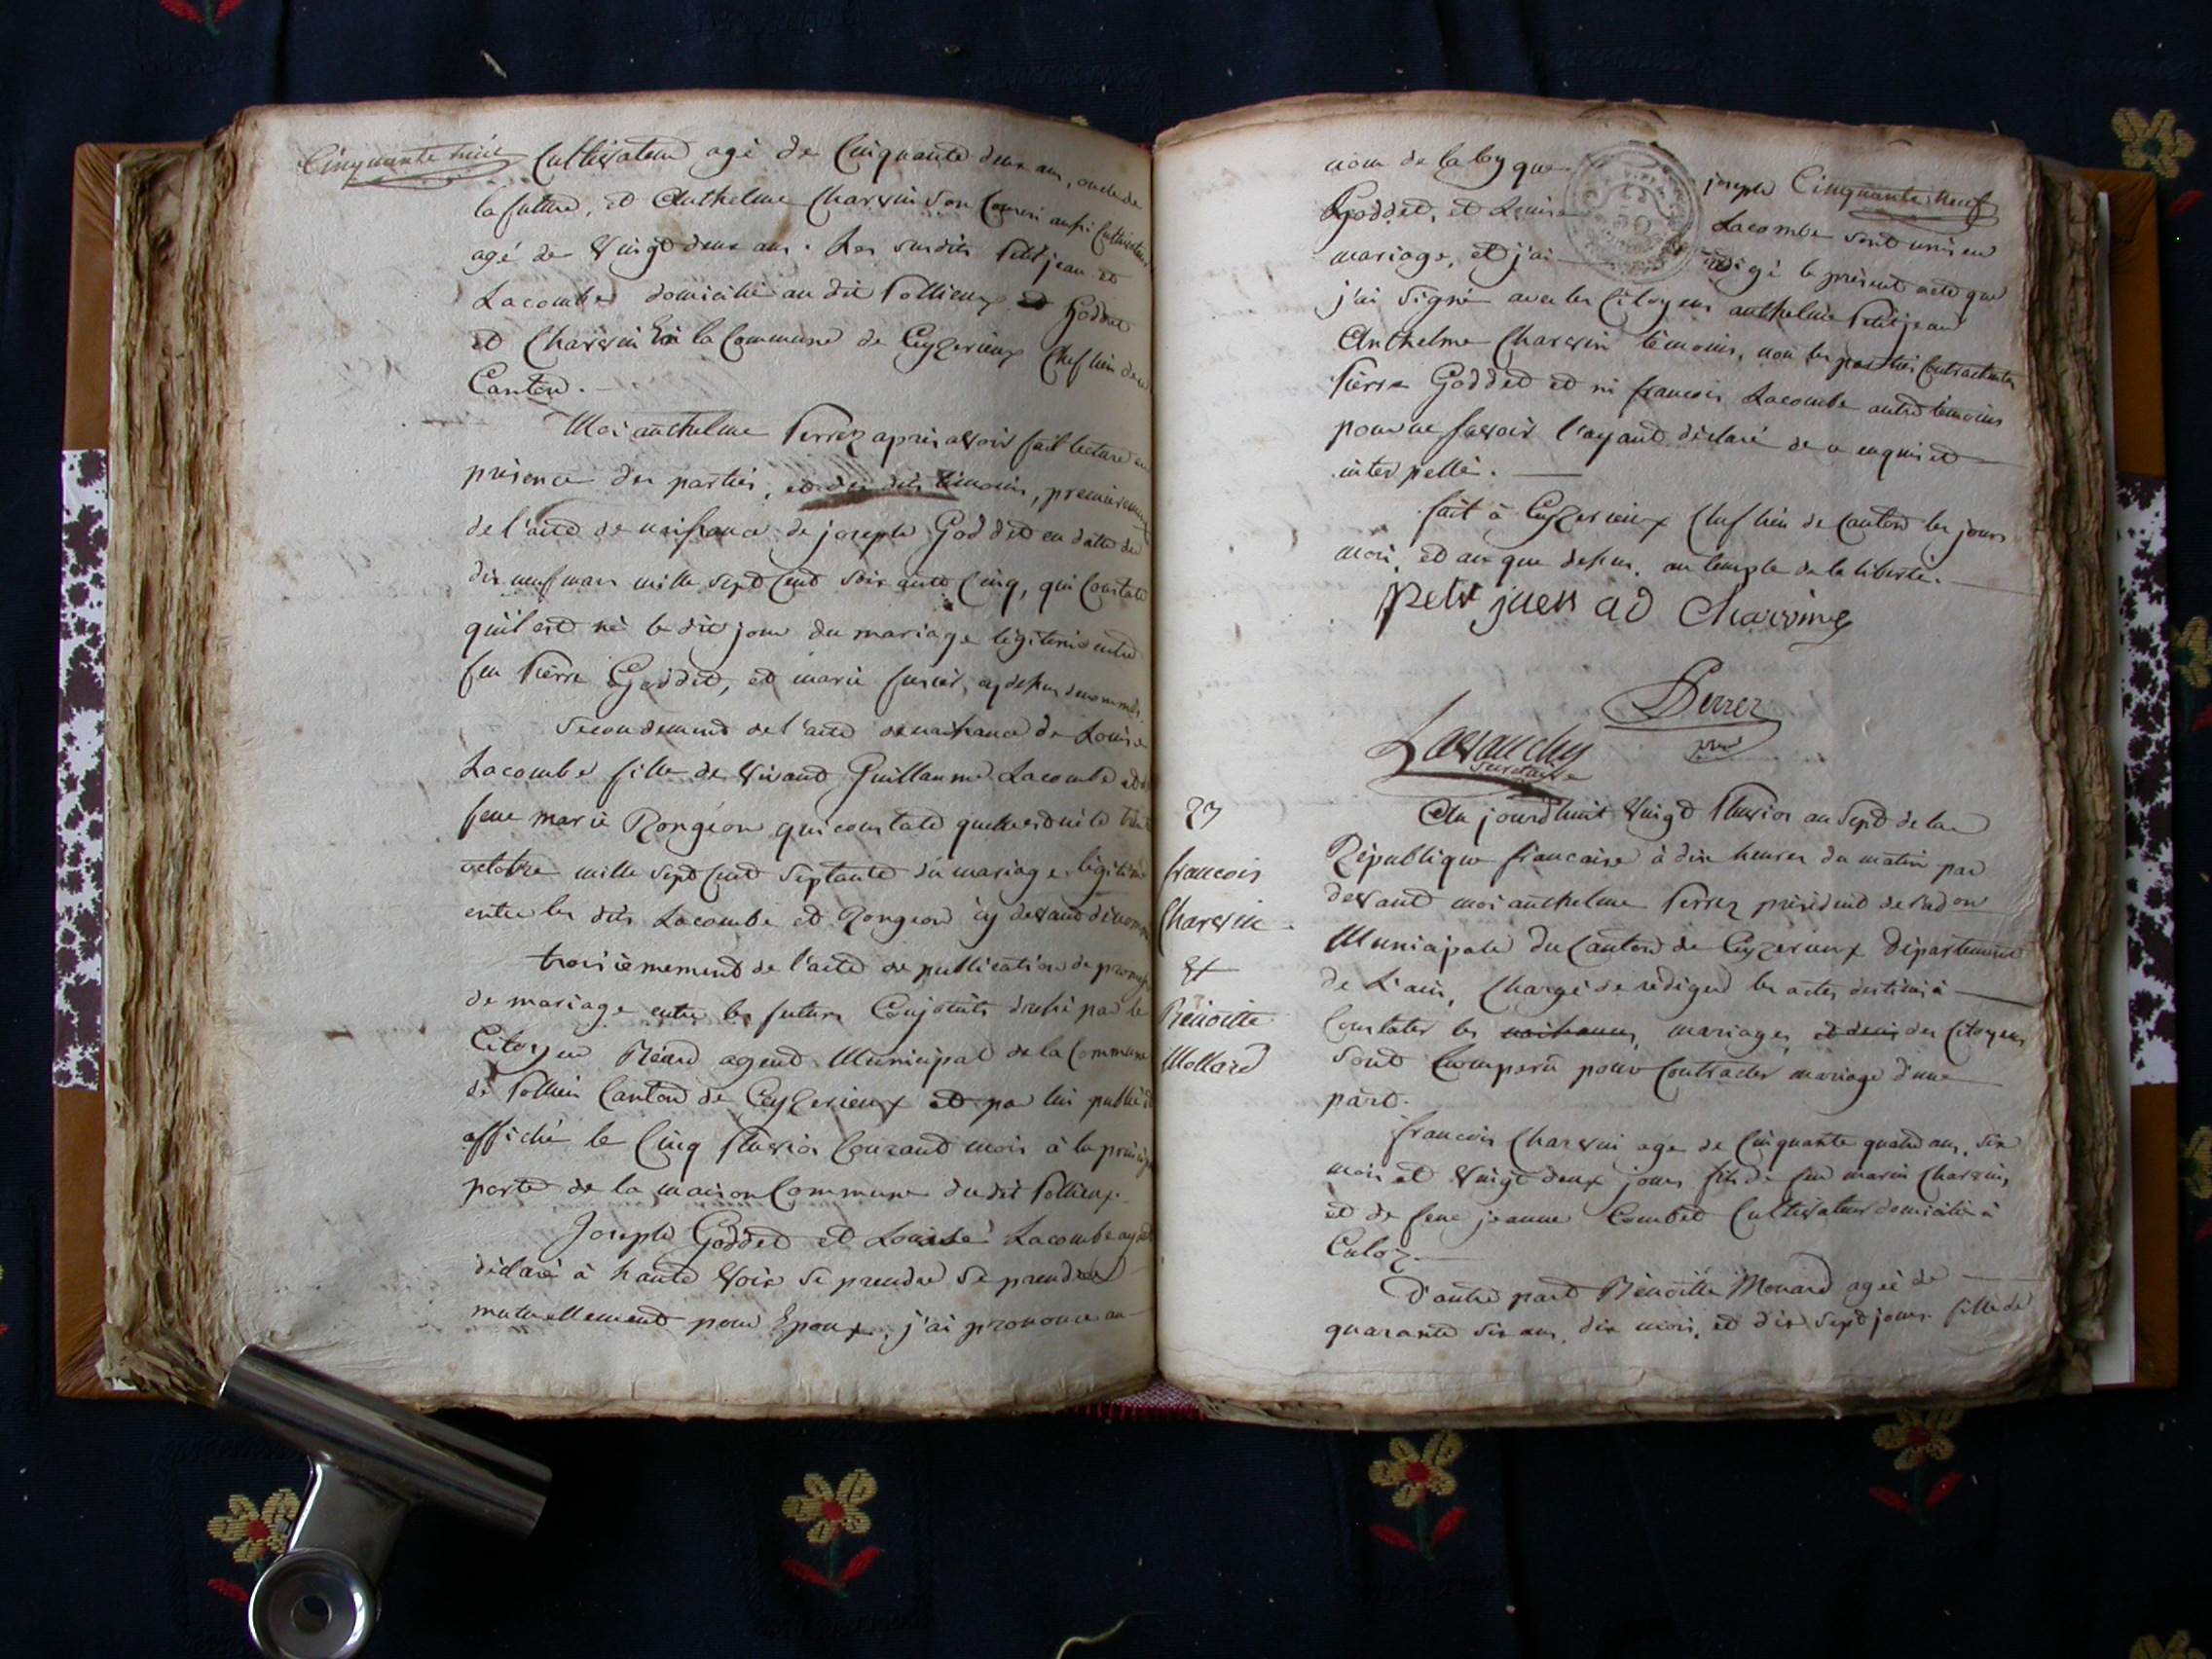 Cinquante huit
Cultivateur agé de Cinquante deux ans, oncle de
la future, et Anthelme Charvin son Cousin aussi Cultivateur
agé de vingt deux ans. Les susdits Petitjean et
Lacombe domicilié au dit Pollieux et Goddet
et Charvin en la Commune de Ceyzerieux Chef lieu de
Canton.
Moi anthelme Perrez après avoir fait lecture en
présence des parties, et des dits témoins, premierement
de l'acte de naissance de joseph Goddet en datte du
dix neuf mars mille sept cent soixante cinq, qui Constate
qu'il est né le dit jour du mariage légitime entre
feu Pierre Goddet, et marie cy dessus denommés.
Secondement de l'acte de naissance de Louise
Lacombe fille de vivant Guillaume Lacombe et de
feue marie Rongeon qui constate qu'elle est née le
octobre mille sept cent septante du mariage légitime
entre les dits Lacombe et Rongeon cy devant dénommé
troisièmement de l'acte de publication de promesse
de mariage entre les futurs Conjoints dressé par le
Citoyen Béard agent Municipal de la Commune
de Pollieu Canton de Ceyzerieux et par lui publié et
affiché le Cinq Pluvios Courant mois à la principale
porte de la maison Commune du dit Pollieux.
Joseph Goddet et Louise Lacombe ayant
déclaré à haute voix se prendre se prendre
mutuellement pour Epoux, j'ai prononcé au
Cinquante neuf
nom de la loy que joseph
Goddet, et Louise Lacombe sont unis en
mariage, et j'ai rédigé le présent acte que
j'ai signé avec les Citoyens anthelme Petitjean
Anthelme Charvin témoins, non les parties Contractantes
Pierre Goddet et ni francois Lacombe autre témoins
pour ne savoir l'ayant déclaré de ce enquis et
interpellé.
fait à Ceyzerieux Chef lieu de Canton les jours
mois, et an que dessus, au temple de la liberté.
Petit jean ad Charvin
Perrez
Lavanchy
secretaire
Au jourdhuit vingt Pluvios an Sept de la
République francaise à dix heures du matin par
devant moi anthelme Perrez président de l'adon
Municipale du Canton de Ceyzerieux Département
de L'ain, Chargé de rédiger les actes destinés à
Constater les naissances, mariages, et décès des Citoyens
sont Comparu pour Contracter mariage d'une
part.
francois Charvin age de Cinquante quatre ans, six
mois et vingt deux jours fils de feu marin Charvin,
et de feue jeanne Combet Cultivateur domicilié à
Culoz.
D'autre part Bénoitte Monard agée de
quarante six ans, dix mois, et dix sept jours fille de
23
francois
Charvin
Et
Bénoitte
Mollard